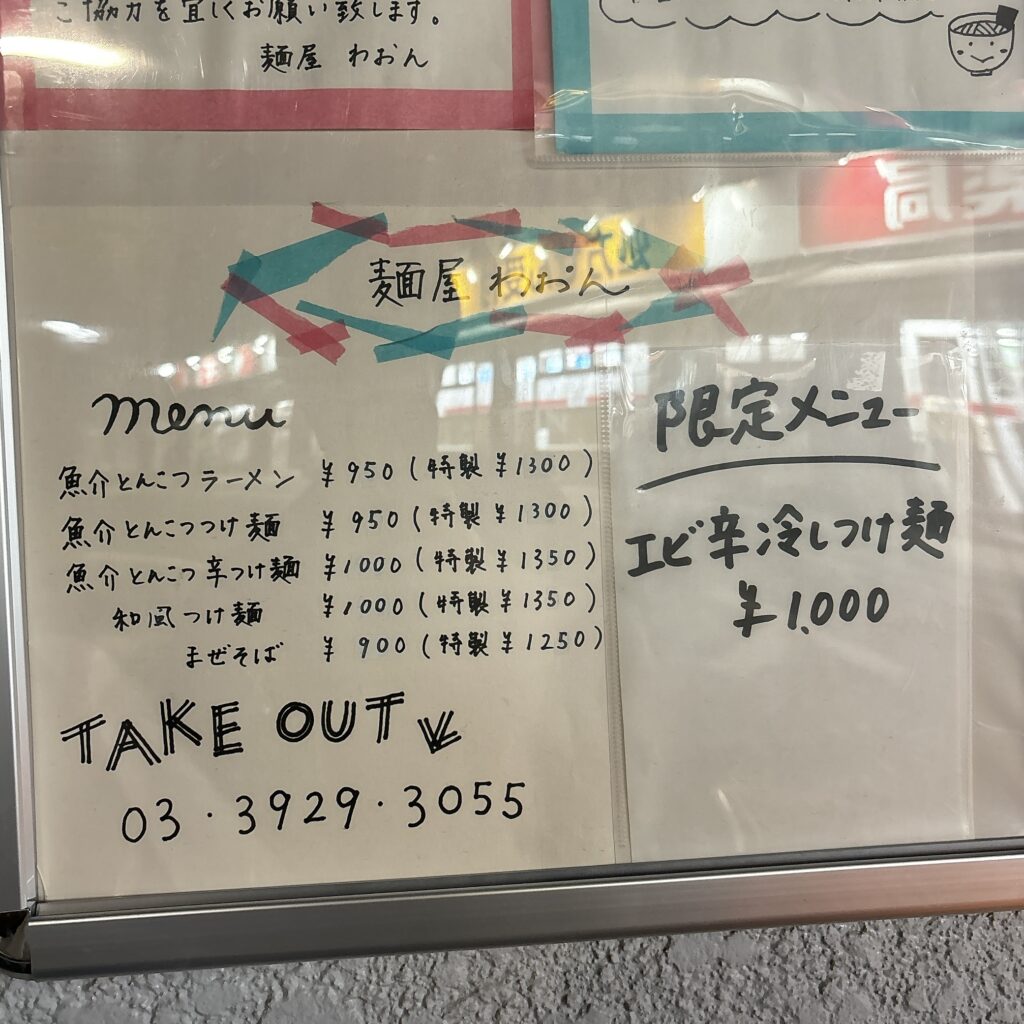 ご協力を宜しくお願い致します。
麺屋 わおん
麺屋 わおん
menu
魚介とんこつラーメン ¥950(特製¥1300)
魚介とんこつつけ麺 ¥950(特製¥1300)
魚介とんこつ辛つけ麺 ¥1000(特製¥1350)
和風つけ麺 ¥1000(特製¥1350)
まぜそば ¥900(特製¥1250)
TAKE OUT↙
03・3929・3055
限定メニュー
エビ辛冷しつけ麺
¥1.000